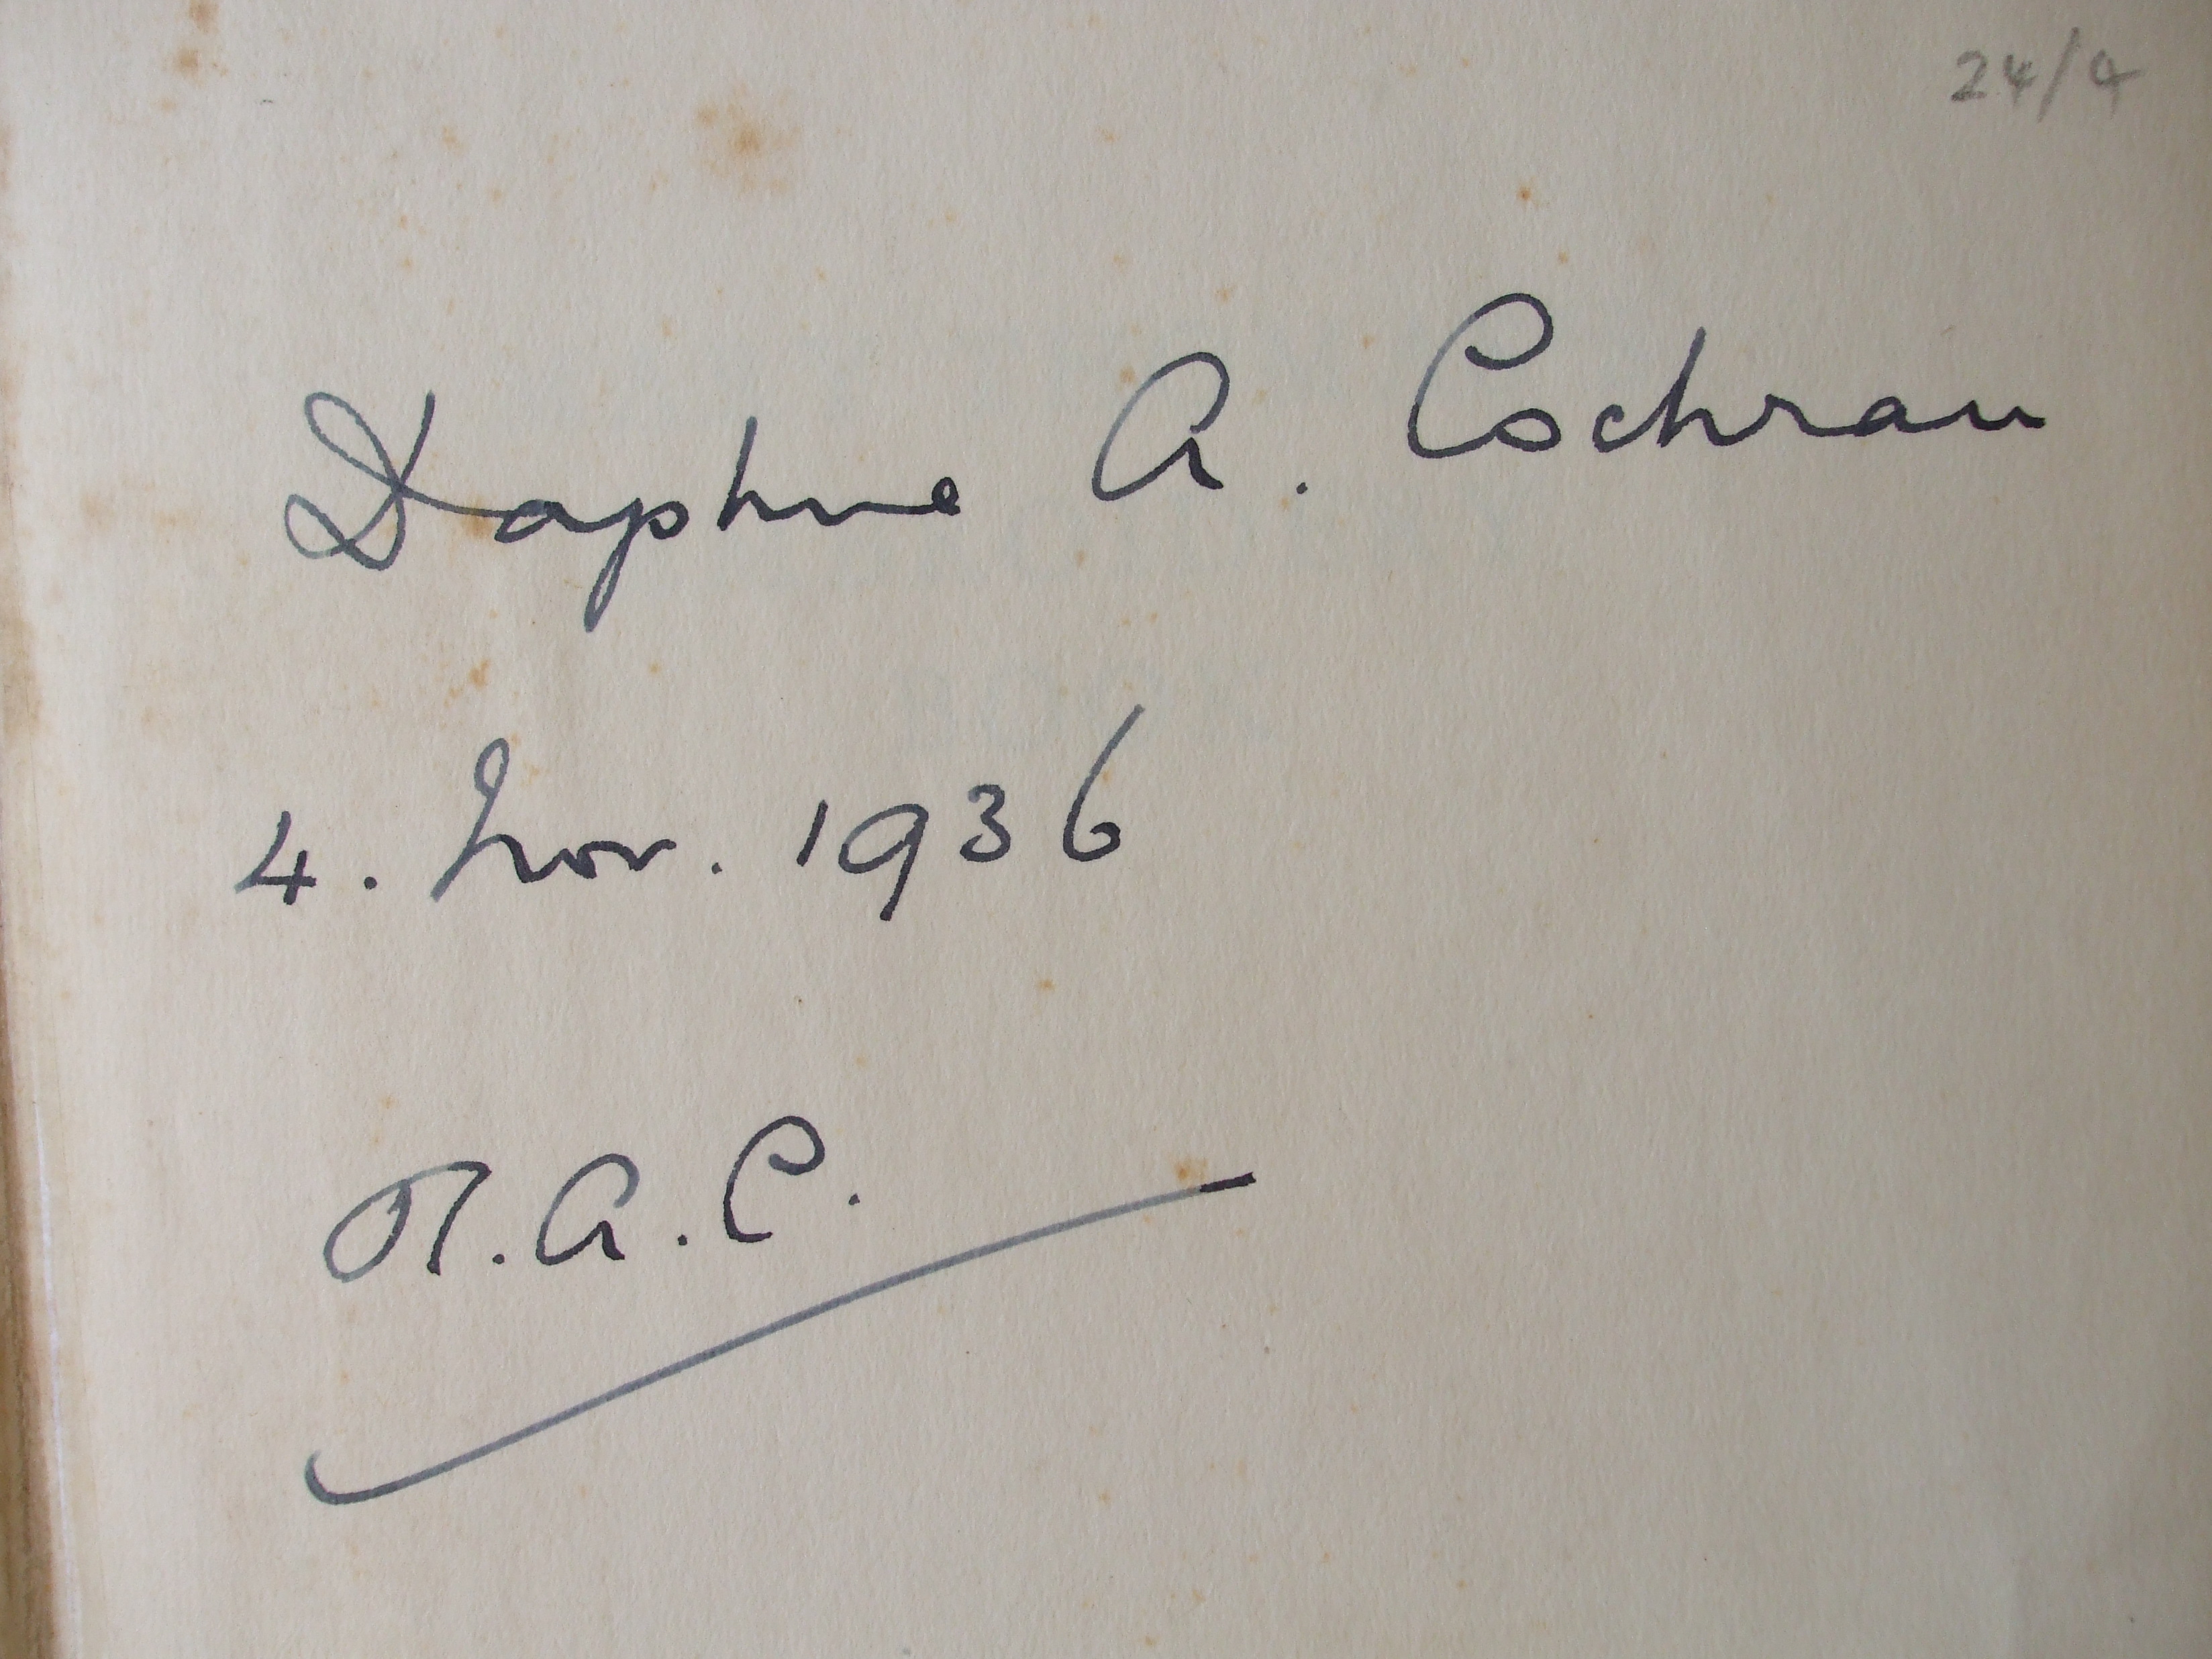 24/4
Daphne A. Cochran
4. Nov. 1936
A.C.